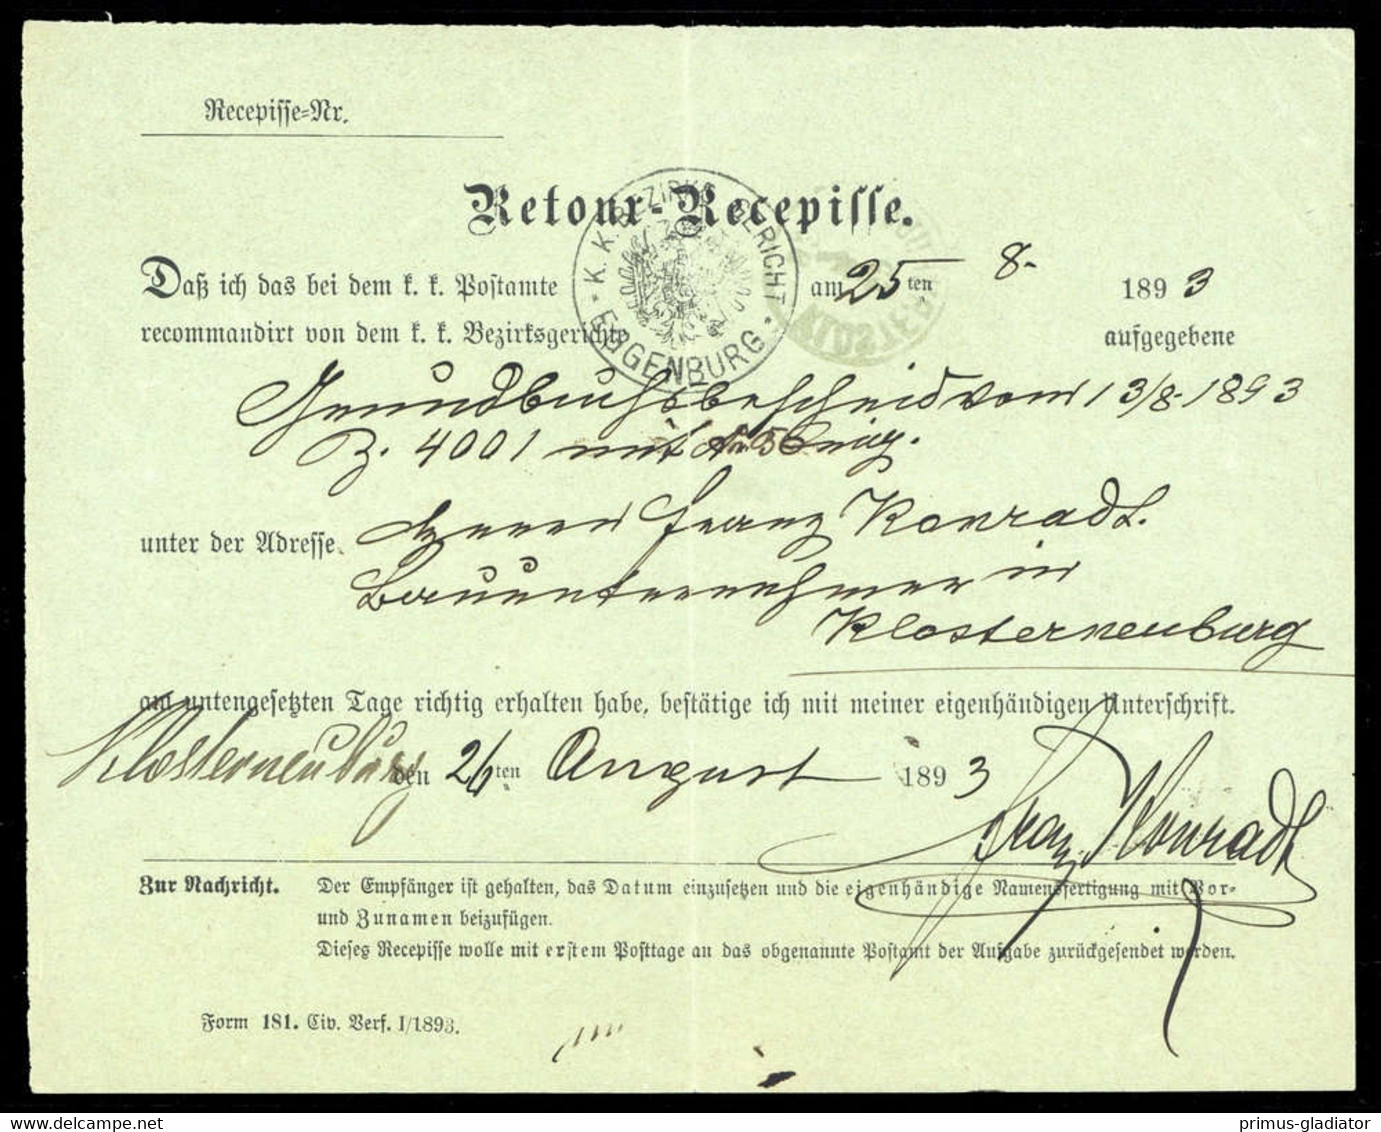 Recepisse-Nr.
Retour-Recepisse.
K. K. BEZIRKS GERICHT
EGGENBURG
Daß ich das bei dem k. k. Postamte am 25ten 8. 1893
recommandirt von dem k. k. Bezirksgerichte aufgegebene
Grundbuchsbescheid vom 13/8. 1893
Z. 4001 mit
unter der Adresse Herrn Franz Konradt.
Bauunternehmer in
Klosterneuburg
am untengesetzten Tage richtig erhalten habe, bestätige ich mit meiner eigenhändigen Unterschrift.
Klosterneuburg den 26ten August 1893
Franz Konradt
Zur Nachricht. Der Empfänger ist gehalten, das Datum einzusetzen und die eigenhändige Namensfertigung mit Vor-
und Zunamen beizufügen.
Dieses Recepisse wolle mit erstem Posttage an das obgenannte Postamt der Aufgabe zurückgesendet werden.
Form 181. Civ. Verf. I/1893.
delcampe.net
primus-gladiator